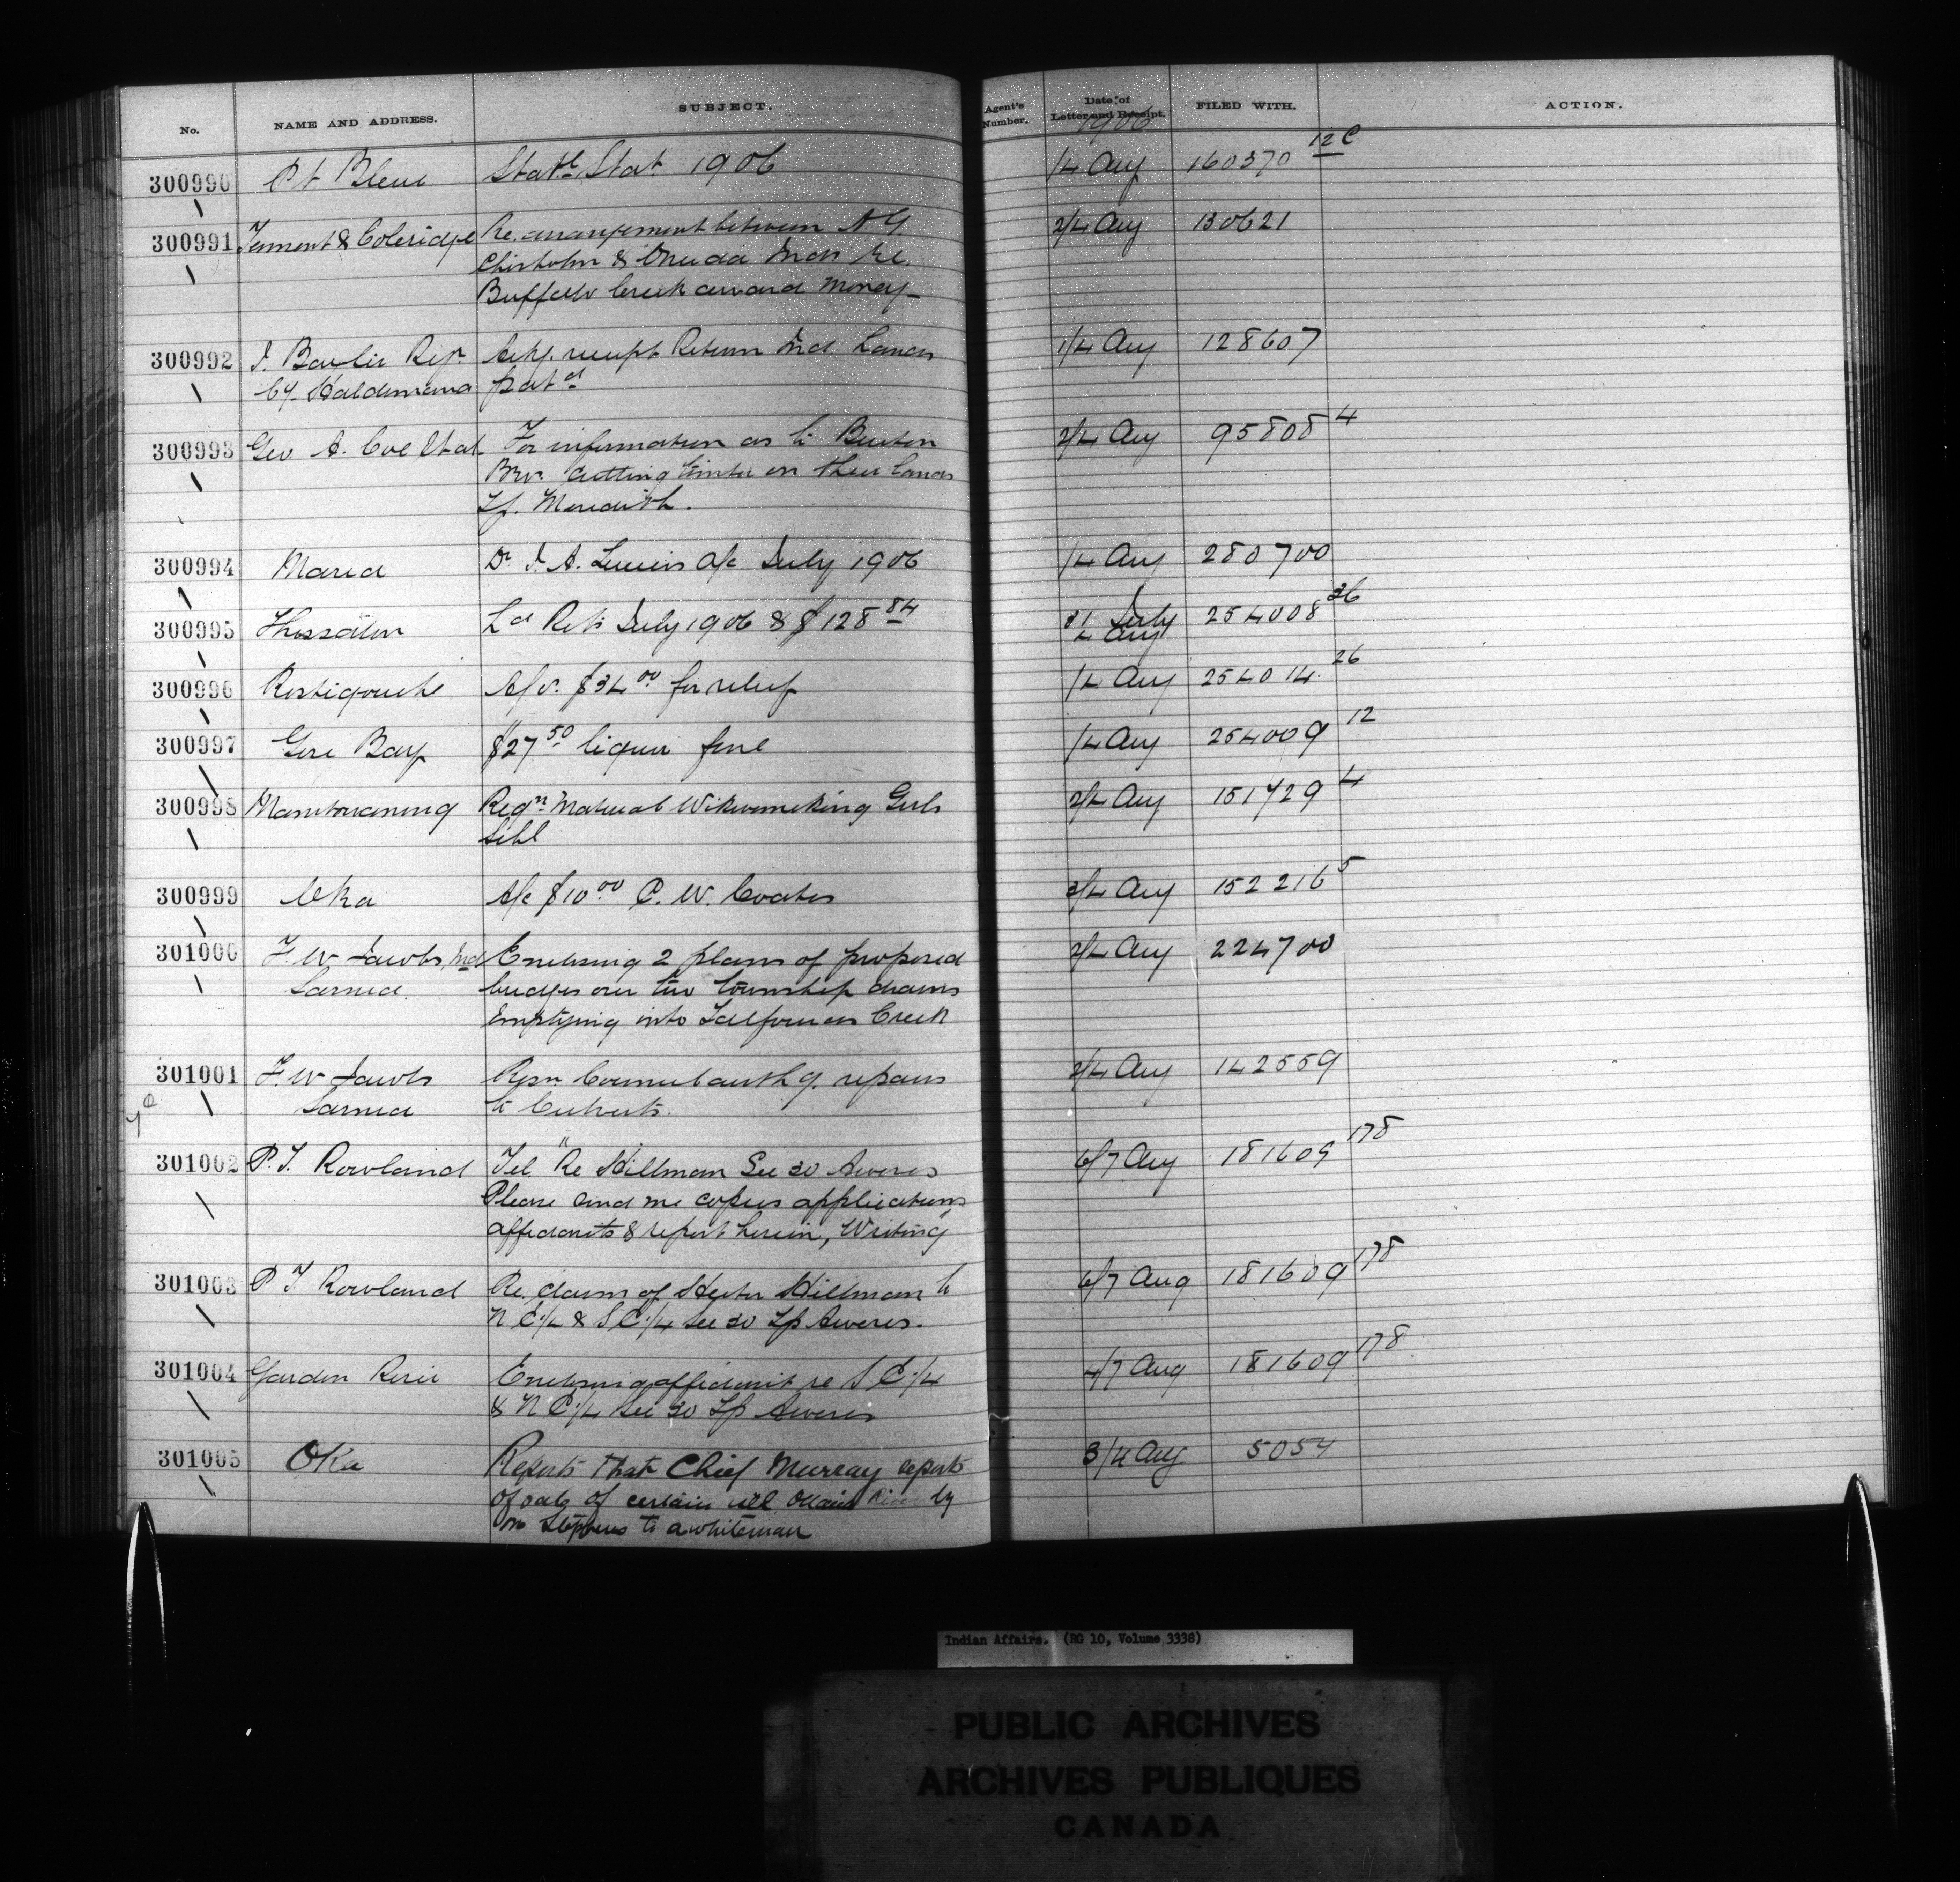 No. NAME AND ADDRESS. SUBJECT. Agent's Number. Date of Letter and Receipt. FILED WITH. ACTION.
1906
300990 Pt Bleue Stat Stat 1906 1/4 Aug 160370 12C
300991 & Coleridge Re. arrangement between A G. 2/4 Aug 130621
Chisholm & Oneida Inds re.
Buffalo Creek award money
300992 Regr Ack'g. receipt Return Ind Lands 1/4 Aug 128607
Cy. Haldimand patd
300993 Geo A. Cole For information as to Burton 2/4 Aug 95808 4
Bros. cutting timber on their lands
Tp. Meredith.
300994 Maria Dr J. A. a/c July 1906 1/4 Aug 280700
300995 Thessalon Ld Rets July 1906 & $128 84 31 July 254008 36
4 Aug
300996 Restigouche A/cs. $34 00 for relief 1/4 Aug 254014 26
300997 Gore Bay $27 50 liquor fine 1/4 Aug 254009 12
300998 Manitowaning Reqn Material Wikwemikong Girls 2/4 Aug 151729 4
Schl
300999 Oka A/c $10 00 P. W. Coates 3/4 Aug 152216 5
301000 F. W Jacobs Ind Enclosing 2 plans of proposed 2/4 Aug 224700
Sarnia. bridges over two township drains
emptying into Talfourds Creek
301001 F. W Jacobs Resn Council authg. repairs 2/4 Aug 142559
Sarnia to Culverts.
301002 P. T. Rowland Tel "Re Hillman Sec 30 Aweres 6/7 Aug 181609 178
Please send me copies applications
affidavits & report herein, Writing"
301003 P T Rowland Re. claim of Hester Hillman to 6/7 Aug 181609 178
N E.1/4 & S E.1/4 Sec 30 Tp Aweres.
301004 Garden River Enclosing affidavit re S E.1/4 4/7 Aug 181609 178
& N E.1/4 Sec 30 Tp Aweres
301005 Oka Reports that Chief Murray reports 3/4 Aug 5054
of sale of certain by
Stephens to a whiteman
Indian Affairs. (RG 10, Volume 3338)
PUBLIC ARCHIVES
ARCHIVES PUBLIQUES
CANADA